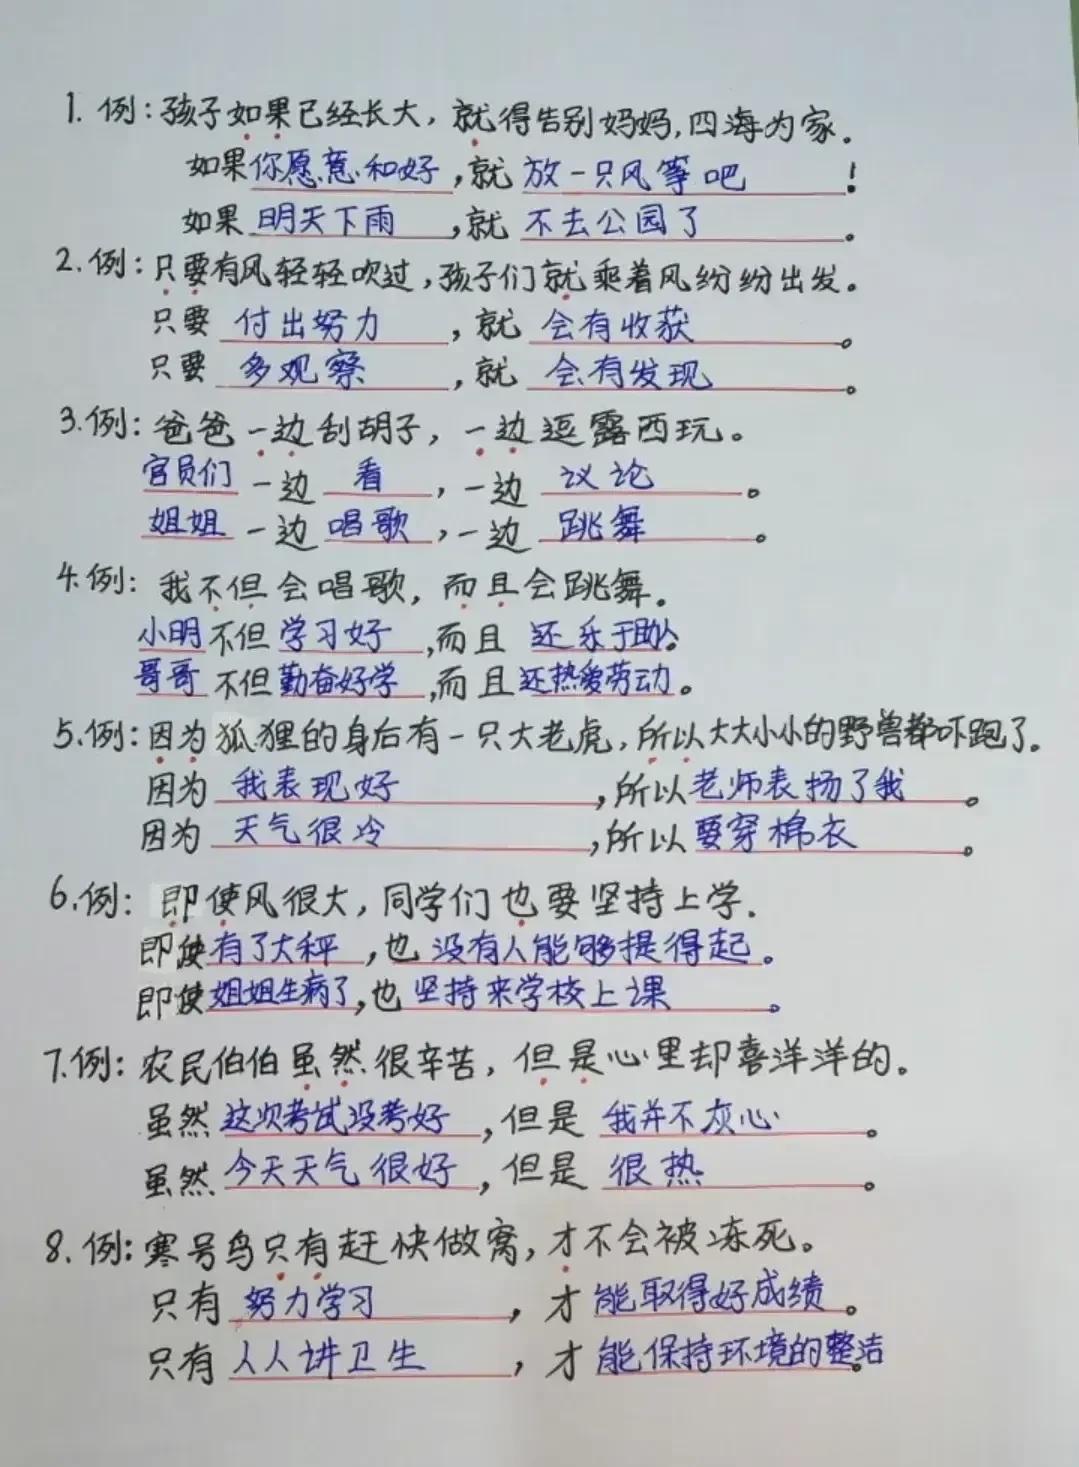 1. 例：孩子如果已经长大，就得告别妈妈，四海为家。
如果你愿意和好，就放一只风筝吧！
如果明天下雨，就不去公园了。
2. 例：只要有风轻轻吹过，孩子们就乘着风纷纷出发。
只要付出努力，就会有收获。
只要多观察，就会有发现。
3. 例：爸爸一边刮胡子，一边逗露西玩。
官员们一边看，一边议论。
姐姐一边唱歌，一边跳舞。
4. 例：我不但会唱歌，而且会跳舞。
小明不但学习好，而且还乐于助人。
哥哥不但勤奋好学，而且还热爱劳动。
5. 例：因为狐狸的身后有一只大老虎，所以大大小小的野兽都吓跑了。
因为我表现好，所以老师表扬了我。
因为天气很冷，所以要穿棉衣。
6. 例：即使风很大，同学们也要坚持上学。
即使有了大秤，也没有人能够提得起。
即使姐姐生病了，也坚持来学校上课。
7. 例：农民伯伯虽然很辛苦，但是心里却喜洋洋的。
虽然这次考试没考好，但是我并不灰心。
虽然今天天气很好，但是很热。
8. 例：寒号鸟只有赶快做窝，才不会被冻死。
只有努力学习，才能取得好成绩。
只有人人讲卫生，才能保持环境的整洁。